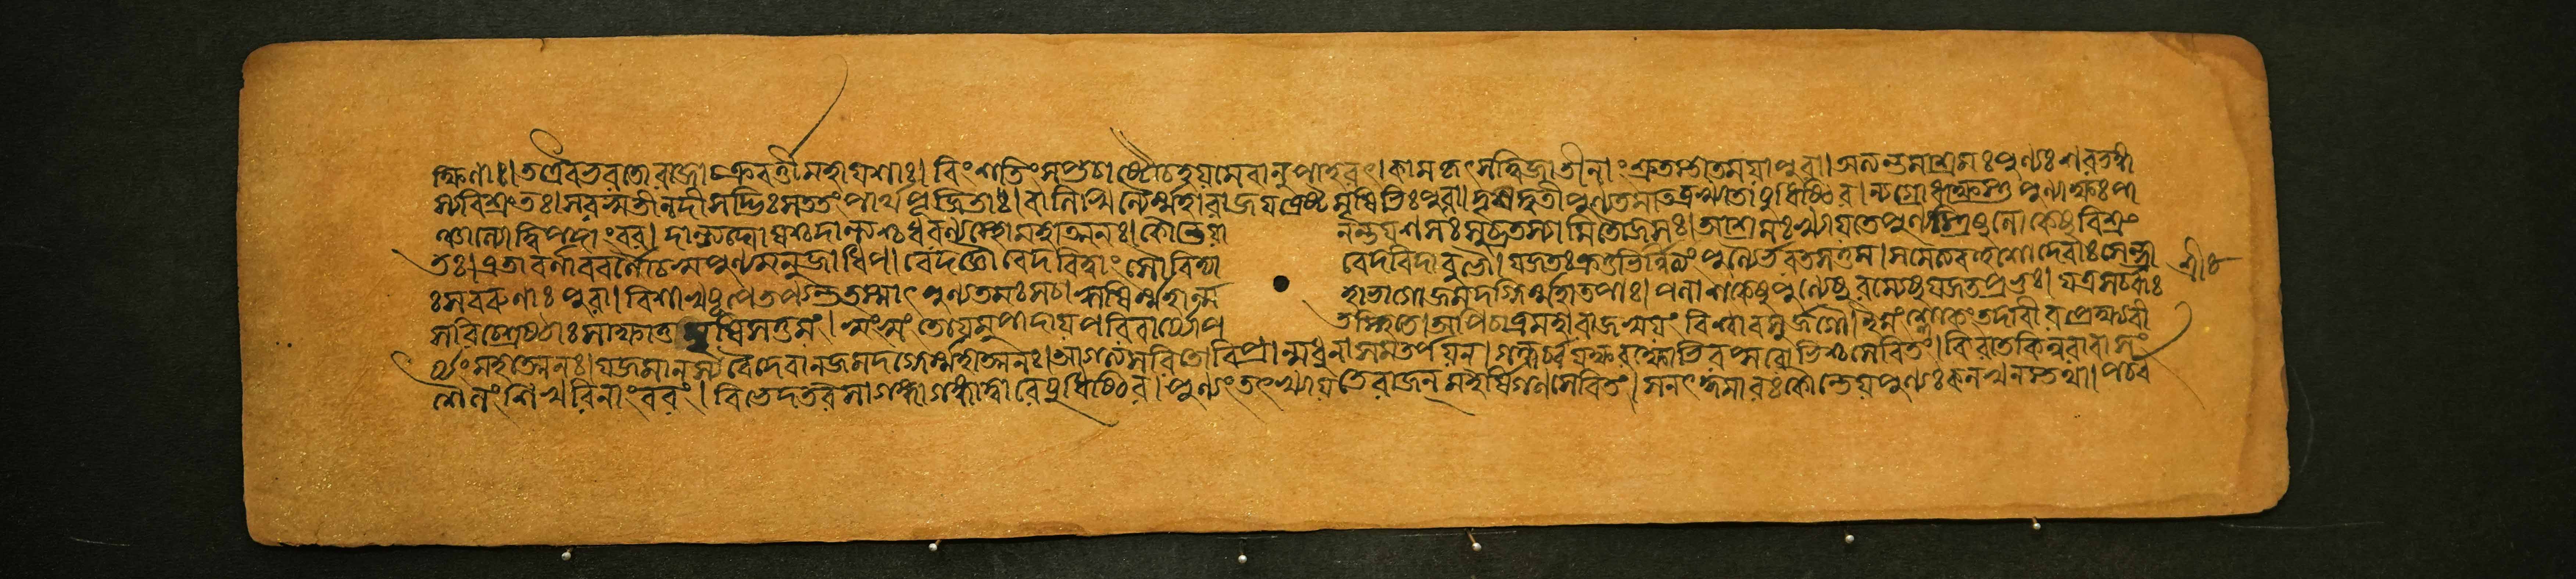 ক্ষিণাঃ। তত্রৈব ভরতো রাজা চক্রবর্ত্তী মহাযশাঃ। বিংশতিং সপ্ত চাষ্টৌ চ হয়মেধানুপাহরৎ। কামকৃৎ স দ্বিজাতীনাং শ্রুতস্তাত ময়া পুরা। অত্যন্তমাশ্রমঃ পুণ্যঃ শরভঙ্গ
স্য বিশ্রুতঃ। সরস্বতী নদী সদ্ভিঃ সততং পার্থ পূজিতাঃ। বালিখিল্যৈর্ম্মহারাজ যত্রেষ্টমৃষিভিঃ পুরা। দৃষদ্বতী পুণ্যতমা তত্র খ্যাতা যুধিষ্ঠির। ন্যগ্রোধাক্ষস্তু পুণ্যাক্ষঃ পা
ঞ্চাল্যো দ্বিপদাং বর। দাল্ভ্যঘোষশ্চ দাল্ভ্যশ্চ ধরণীস্থো মহাত্মনঃ। কৌন্তেয়া নন্তযশসঃ সুব্রতস্যামিতৌজসঃ। আশ্রমঃ খ্যায়তে পুণ্যস্ত্রিষু লোকেষু বিশ্রু
তঃ। এতাবর্ণাববর্ণৌ চ পুণ্যমনুজাধিপ। বেদজ্ঞৌ বেদবিদ্বাংসৌ বিদ্যা বেদবিদাবুভৌ। যজতঃ ক্রতুভির্ন্নিত্যং পুণ্যৈর্ভরতসত্তম। সমেত্য বহুশো দেবাঃ সেন্দ্রা
ঃ সবরুণাঃ পুরা। বিশাখযূপে তপ্যন্ত তস্মাৎ পুণ্যতমঃ স চ। ঋষির্ম্মহান্ম হাভাগো জমদগ্নির্ম্মহাতপাঃ। পলাশকেষু পুণ্যেষু রম্যেষু যজত প্রভুঃ। যত্র সর্ব্বাঃ
সরিচ্ছ্রেষ্ঠাঃ সাক্ষাত্তমৃষিসত্তমং। স্বং স্বং তোয়মুপাদায় পরিবার্য্যোপ তস্থিরে। অপি চাত্র মহারাজ স্বয়ং বিশ্বাবসুর্জগৌ। ইমং শ্লোকং তদা বীর প্রেক্ষ্য বী
র্য্যং মহাত্মনঃ। যজমানস্য বৈ দেবান জমদগ্নের্ম্মহাত্মনঃ। আগত্য সরিতো বিপ্রান্মধুনা সমতর্পয়ন্। গন্ধর্ব্বযক্ষরক্ষোভিরপ্সরোভিশ্চ সেবিতং। কিরাতকিন্নরাবাসং
শৈলং শিখরিণাং বরং। বিভেদ তরসা গঙ্গা গঙ্গাদ্বারে যুধিষ্ঠির। পুণ্যং তৎ খ্যায়তে রাজন্ মহর্ষিগণসেবিতং। সনৎকুমারঃ কৌন্তেয় পুণ্যঃ কনখলস্তথা। পর্ব্ব